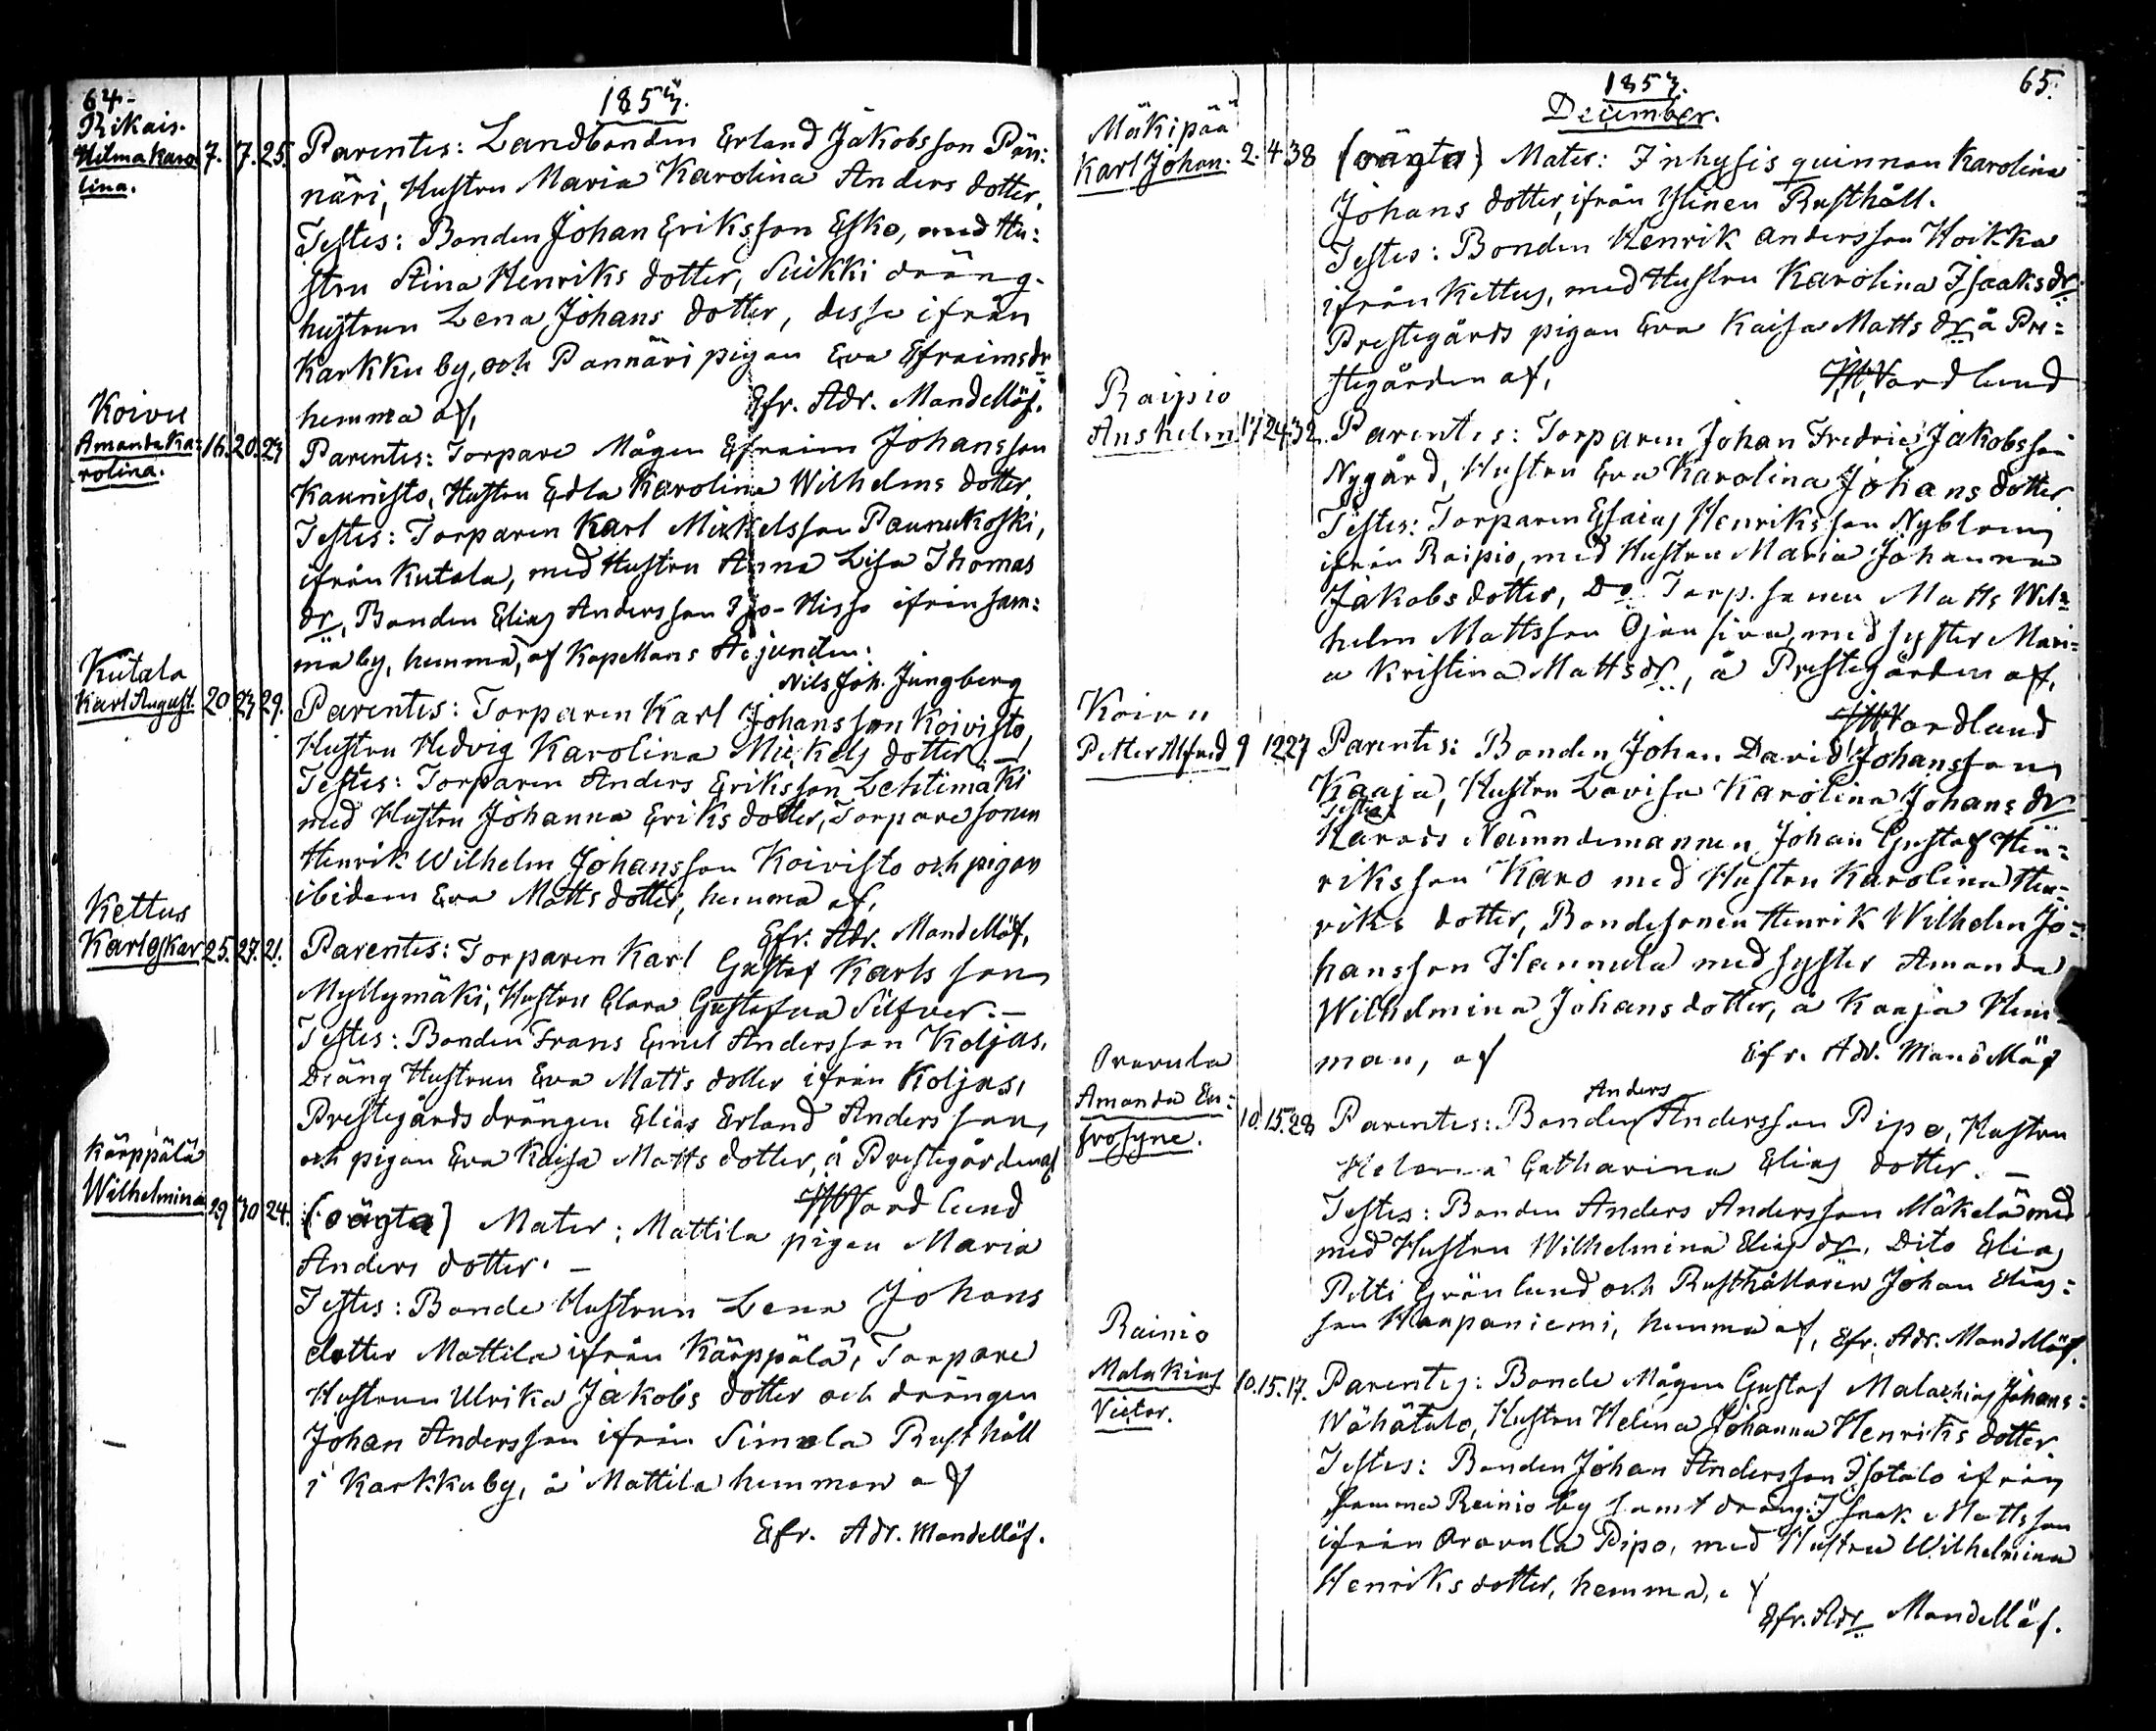 64.
1857.
Rikais.
Hilma Karo
lina.
7. 7. 25.
Parentes: Landbonden Erland Jakobsson Pän:
näri, Hustru Maria Karolina Anders dotter.
Testes: Bonden Johan Eriksson Esko, med Hu:
stru Stina Henriks dotter, Suikki dräng-
hustrun Lena Johans dotter, desse ifrån
Karkku by, och Pannäri pigan Eva Efraimsdr
hemma af,
Efr. Adr. Mandellöf.
Koivu
Amanda Ka:
rolina.
16. 20. 23
Parentes: Torpare Mågen Efraim Johansson
Kaunisto, Hustru Edla Karolina Wilhelms dotter.
Testes: Torparen Karl Mickelsson Paunukoski,
ifrån Kutala, med Hustru Anna Lisa Thomas
dr, Bonden Elias Andersson Iso-Hiso ifrån sam:
ma by, hemma, af Kapellans Adjuncten:
Nils Joh. Jungberg
Kutala
Karl August.
20 23 29.
Parentes: Torparen Karl Johansson Koivisto,
Hustru Hedvig Karolina Mickels dotter. —
Testes: Torparen Anders Eriksson Lehtimäki
med Hustru Johanna Eriks dotter, Torpare sonen
Henrik Wilhelm Johansson Koivisto och pigan
ibidem Eva Matts dotter, hemma af,
Efr. Adr. Mandellöf.
Kettus
Karl Oskar
25. 27. 21.
Parentes: Torparen Karl Gustaf Karls son
Myllymäki, Hustru Clara Gustafva Silfver. —
Testes: Bonden Frans Emel Andersson Koljas.
Dräng Hustrun Eva Matts dotter ifrån Koljas,
Prestegårds drängen Elias Erland Anders son,
och pigan Eva Kaisa Matts dotter, å Prestegården af
Nordlund
Kärppälä
Wilhelmina
29 30 24.
(oägta) Mater: Mattila pigan Maria
Anders dotter. —
Testes: Bonde Hustrun Lena Johans
dotter Mattila ifrån Kärppälä, Torpare
Hustrun Ulrika Jakobs dotter och drängen
Johan Andersson ifrån Simola Rusthåll
i Karkku by, å Mattila hemman af
Efr. Adr. Mandellöf.
65.
1857.
December.
Mäkipää
Karl Johan.
2. 4. 38
(oägta) Mater: Inhysis quinnan Karolina
Johans dotter, ifrån Ylinen Rusthåll.
Testes: Bonden Henrik Andersson Hoikka
ifrån Kettus, med Hustru Karolina Isaaksdr
Prestegårds pigan Eva Kaisa Matts dr å Pre:
stegården af,
Nordlund
Raipio
Anshelm
17 24 32.
Parentes: Torparen Johan Fredric Jakobsson
Nygård, Hustru Eva Karolina Johans dotter
Testes: Torparen Esaias Henriksson Nyblom
ifrån Raipio, med Hustru Maria Johanna
Jakobs dotter, Do Torp. sonen Matts Wil:
helm Mattsson Ojansivu, med syster Mari:
a Kristina Matts dr, å Prestegården af,
Nordlund
Koivu
Petter Alfred
9 12 27
Parentes: Bonden Johan David Johansson
Kaaja, Hustru Lovisa Karolina Johans dr
Testes
Harads Nämndemannen Johan Gustaf Hen:
riksson Karo med Hustru Karolina Hen:
riks dotter, Bondesonen Henrik Wilhelm Jo:
hansson Hannula med syster Amanda
Wilhelmina Johans dotter, å Kaaja Hem
man, af
Efr. Adr. Mandellöf
Oravula
Amanda Eu:
frosyne.
10. 15. 28
Anders
Parentes: Bonden Andersson Pipo, Hustru
Helena Catharina Elias dotter. —
Testes: Bonden Anders Andersson Mäkelä med
med Hustru Wilhelmina Elias dr, Dito Elias
Piltti Grönlund och Rusthållaren Johan Elias:
son Haapaniemi, hemma af, Efr. Adr. Mandellöf.
Rainio
Malakias
Victor.
10. 15. 17.
Parentes: Bonde Mågen Gustaf Malachias Johans:
Wähätalo, Hustru Helena Johanna Henriks dotter
Testes: Bonden Johan Andersson Isotalo ifrån
samma Reinio by samt dräng. Isaak Mattsson
ifrån Oravula Pipo, med Hustru Wilhelmina
Henriks dotter, hemma, af
Efr. Adr Mandellöf.